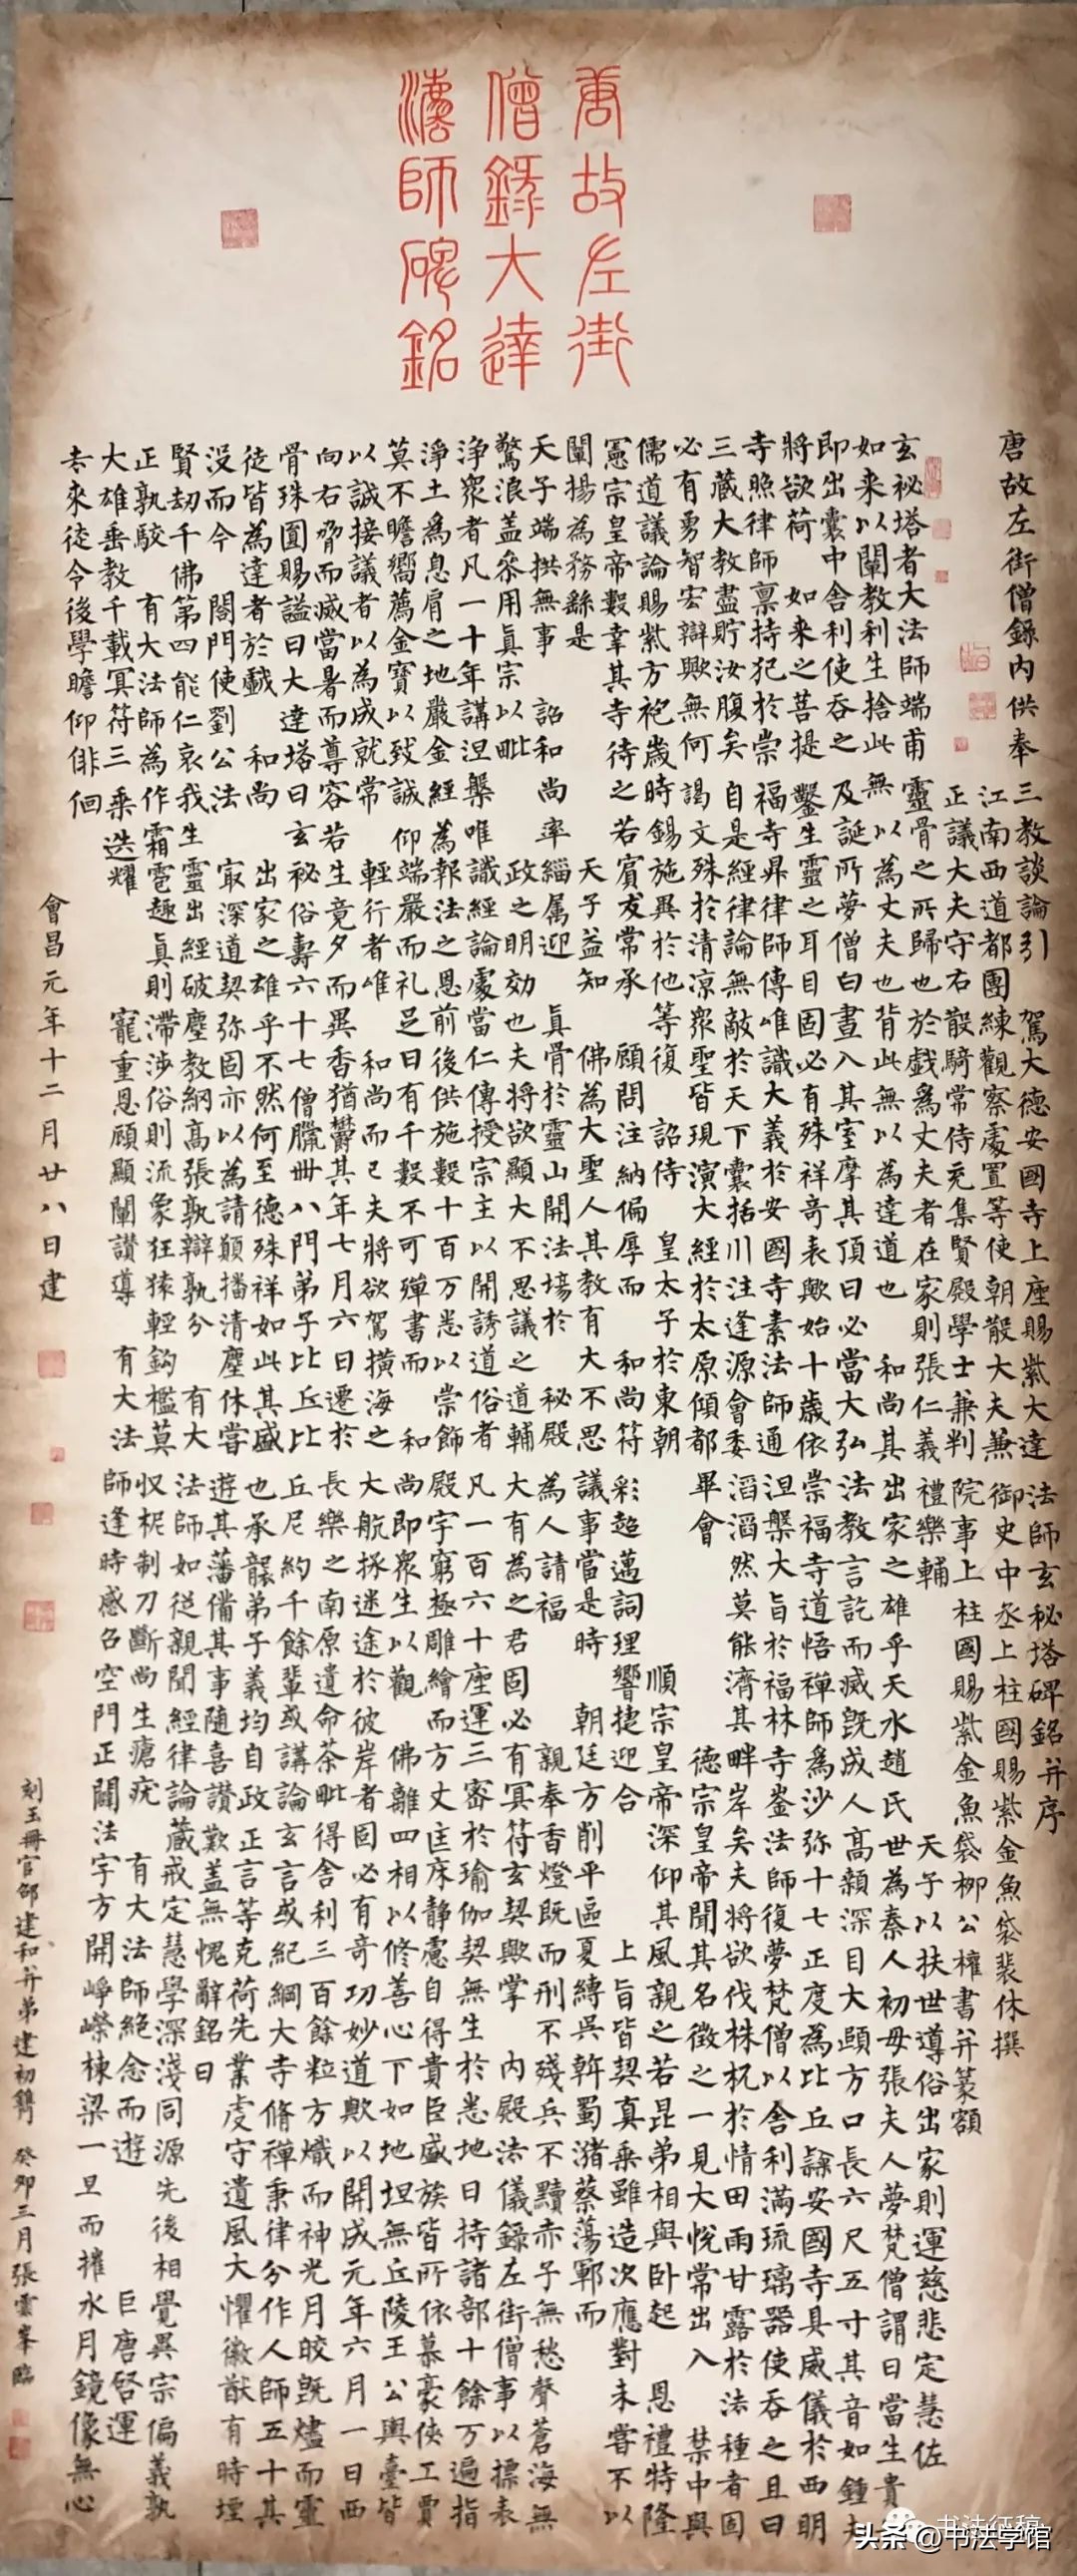 唐故左街
僧錄大達
法師碑銘
唐故左街僧錄內供奉三教談論引 駕大德安國寺上座賜紫大達法師玄秘塔碑銘并序
江南西道都團練觀察處置等使朝散大夫兼御史中丞上柱國賜紫金魚袋裴休撰
正議大夫守右散騎常侍充集賢殿學士兼判院事上柱國賜紫金魚袋柳公權書并篆額
玄祕塔者大法師端甫靈骨之所歸也於戲爲丈夫者在家則張仁義禮樂輔 天子以扶世導俗出家則運慈悲定慧佐
如來以闡教利生捨此無以為丈夫也背此無以為達道也 和尚其出家之雄乎天水趙氏世為秦人初母張夫人夢梵僧謂曰當生貴
即出囊中舍利使吞之及誕所夢僧白晝入其室摩其頂曰必當大弘法教言訖而滅既成人高顙深目大頤方口長六尺五寸其音如鍾夫
將欲荷 如來之菩提鑿生靈之耳目固必有殊祥奇表歟始十歲依崇福寺道悟禪師爲沙弥十七正度為比丘隸安國寺具威儀於西明
寺照律師稟持犯於崇福寺昇律師傳唯識大義於安國寺素法師通涅槃大旨於福林寺崟法師復夢梵僧以舍利滿琉璃器使吞之且曰
三藏大教盡貯汝腹矣自是經律論無敵於天下囊括川注逢源會委滔滔然莫能濟其畔岸矣夫將欲伐株杌於情田雨甘露於法種者固
必有勇智宏辯歟無何謁文殊於清凉衆聖皆現演大經於太原傾都畢會 德宗皇帝聞其名徵之一見大悅常出入 禁中與
儒道議論賜紫方袍歲時錫施異於他等復 詔侍 皇太子於東朝 順宗皇帝深仰其風親之若昆弟相與卧起 恩禮特隆
憲宗皇帝數幸其寺待之若賓友常承 顧問注納偏厚而 和尚符彩超邁詞理響捷迎合 上旨皆契真乘雖造次應對未甞不以
闡揚為務繇是 天子益知 佛為大聖人其教有大不思議事當是時 朝廷方削平區夏縛吳斡蜀潴蔡蕩鄆而
天子端拱無事 詔和尚率緇属迎 真骨於靈山開法場於 秘殿為人請福 親奉香燈既而刑不殘兵不黷赤子無愁聲蒼海無
驚浪盖叅用真宗以毗 政之明効也夫將欲顯大不思議之道輔大有為之君固必有冥符玄契歟掌 內殿法儀錄左街僧事以摽表
浄衆者凡一十年講涅槃唯識經論處當仁傳授宗主以開誘道俗者凡一百六十座運三密於瑜伽契無生於悉地日持諸部十餘万遍指
淨土為息肩之地嚴金經為報法之恩前後供施數十百万悉以崇飾殿宇窮極雕繪而方丈匡床静慮自得貴臣盛族皆所依慕豪俠工賈
莫不瞻嚮薦金寶以致誠仰端嚴而礼足日有千數不可殫書而 和尚即衆生以觀 佛離四相以修善心下如地坦無丘陵王公輿臺皆
以誠接議者以為成就常輕行者唯 和尚而已夫將欲駕橫海之大航拯迷途於彼岸者固必有奇功妙道歟以開成元年六月一日西
向右脅而滅當暑而尊容若生竟夕而異香猶鬱其年七月六日遷於長樂之南原遺命茶毗得舍利三百餘粒方熾而神光月皎既燼而靈
骨珠圓賜謚曰大達塔曰玄祕俗壽六十七僧臘卌八門弟子比丘比丘尼約千餘輩或講論玄言或紀綱大寺脩禪秉律分作人師五十其
徒皆為達者於戲 和尚出家之雄乎不然何至德殊祥如此其盛也承襲弟子義均自政正言等克荷先業虔守遺風大懼徽猷有時堙
没而今 閤門使劉公法㝡深道契弥固亦以為請願播清塵休甞遊其藩備其事隨喜讚歎盖無愧辭銘曰
賢劫千佛第四能仁哀我生靈出經破塵教綱高張孰辯孰分 有大法師如從親聞經律論藏戒定慧學深淺同源先後相覺異宗偏義孰
正孰駮 有大法師為作霜雹趣真則滯涉俗則流象狂猿輕鈎檻莫收柅制刀斷尚生瘡疣 有大法師絕念而遊 巨唐啓運
大雄垂教千載冥符三乘迭耀 寵重恩顧顯闡讚導 有大法師逢時感召空門正闢法宇方開崢嶸棟梁一旦而摧水月鏡像無心
去來徒令後學瞻仰俳佪
會昌元年十二月廿八日建
刻玉冊官邵建和并弟建初鐫 癸卯三月張雲峯臨
书法征稿
头条 @书法学馆